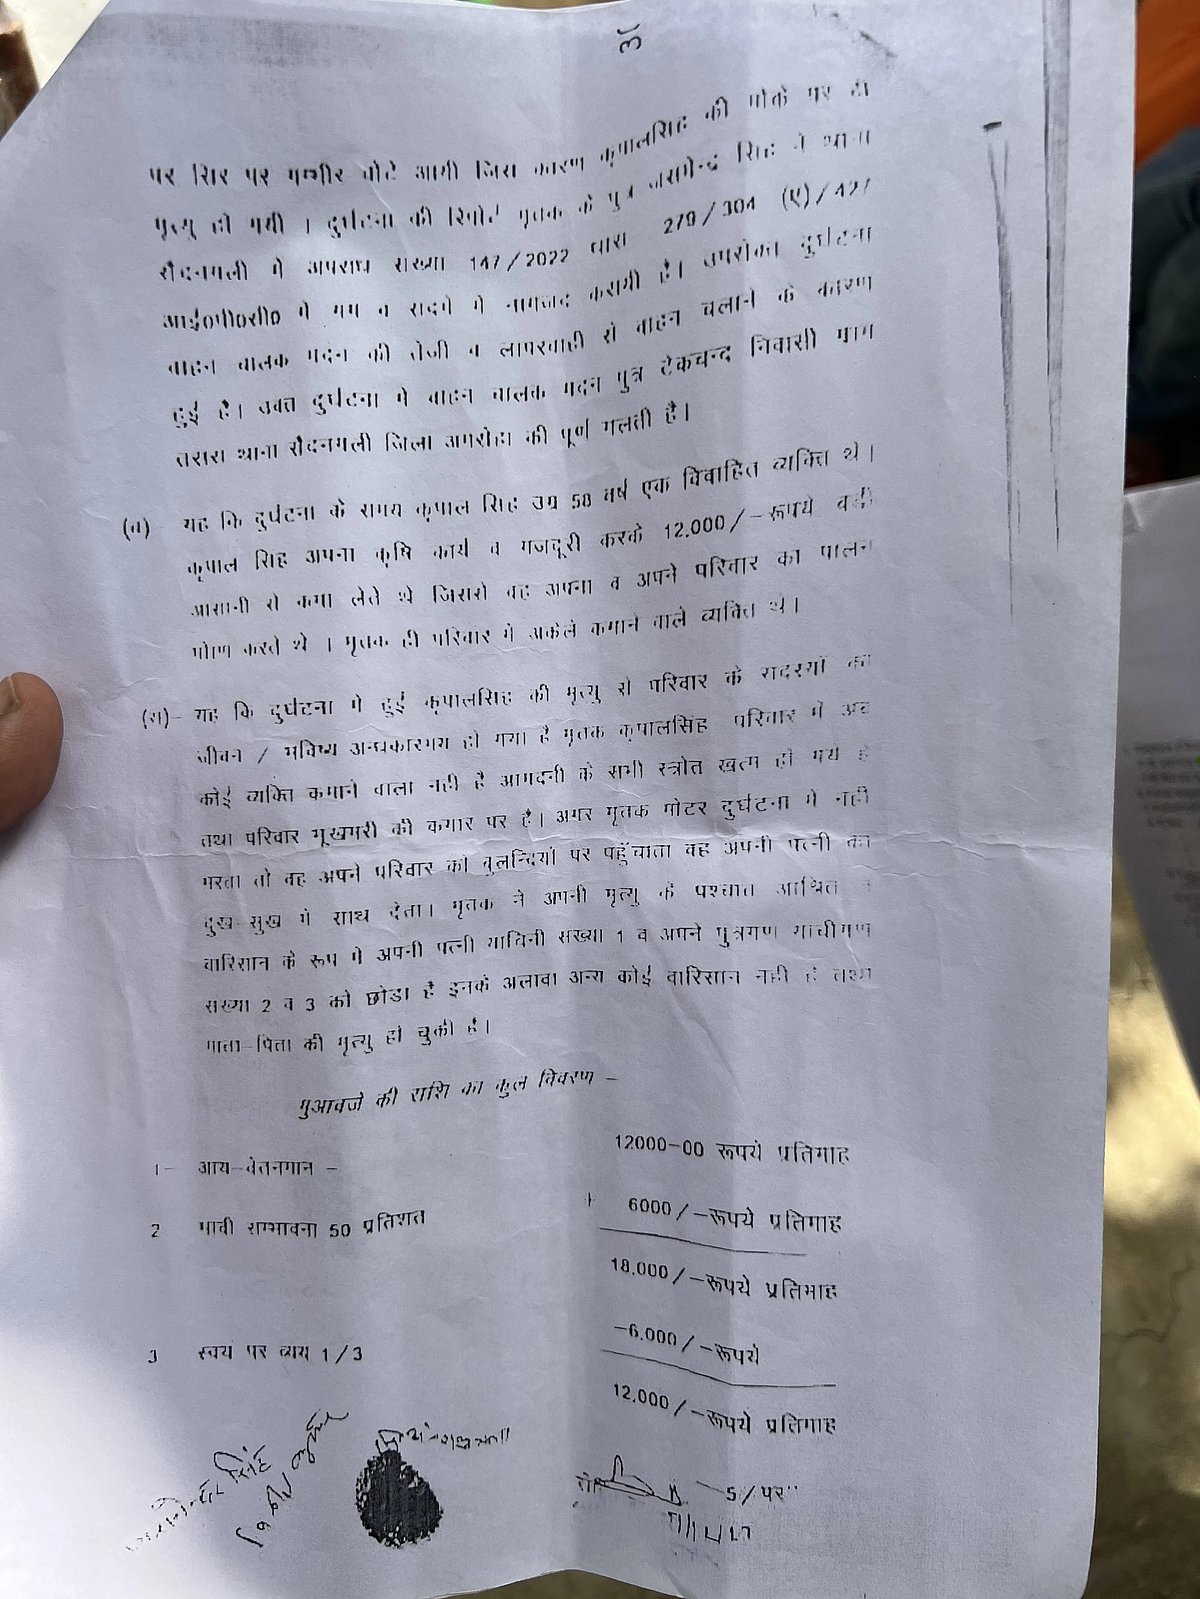 पर सिर पर गम्भीर चोटे आयी जिस कारण कृपालसिंह की मौके पर ही
मृत्यु हो गयी । दुर्घटना की रिपोर्ट मृतक के पुत्र सिंह ने थाना
सैदनगली में अपराध संख्या 147/2022 धारा 279/304 (ए)/427
आई0पी0सी0 में मय व सदमे में नामजद करायी है। उपरोक्त दुर्घटना
वाहन चालक मदन की तेजी व लापरवाही से वाहन चलाने के कारण
हुई है। उक्त दुर्घटना में वाहन चालक मदन पुत्र टेकचन्द निवासी ग्राम
तरारा थाना सैदनगली जिला अमरोहा की पूर्ण गलती है।
(ब) यह कि दुर्घटना के समय कृपाल सिंह उम्र 58 वर्ष एक विवाहित व्यक्ति थे।
कृपाल सिंह अपना कृषि कार्य व मजदूरी करके 12,000/-रूपये बडी
आसानी से कमा लेते थे जिससे वह अपना व अपने परिवार का पालन
पोषण करते थे । मृतक ही परिवार में अकेले कमाने वाले व्यक्ति थे।
(स)- यह कि दुर्घटना में हुई कृपालसिंह की मृत्यु से परिवार के सदस्यों का
जीवन / भविष्य अन्धकारमय हो गया है मृतक कृपालसिंह परिवार में अब
कोई व्यक्ति कमाने वाला नही है आमदनी के सभी स्त्रोत खत्म हो गये है
तथा परिवार भूखमरी की कगार पर है। अगर मृतक मोटर दुर्घटना में नही
मरता तो वह अपने परिवार को बुलन्दियों पर पहुँचाता वह अपनी पत्नी का
दुख-सुख में साथ देता। मृतक ने अपनी मृत्यु के पश्चात आश्रित व
वारिसान के रूप में अपनी पत्नी याचिनी संख्या 1 व अपने पुत्रगण याचीगण
संख्या 2 व 3 को छोडा है इनके अलावा अन्य कोई वारिसान नही है तथा
माता-पिता की मृत्यु हो चुकी है।
मुआवजे की राशि का कुल विवरण –
1- आय-वेतनमान – 12000-00 रूपये प्रतिमाह
2 भावी सम्भावना 50 प्रतिशत + 6000/-रूपये प्रतिमाह
18,000/-रूपये प्रतिमाह
3 स्वयं पर व्यय 1/3 -6,000/-रूपये
12,000/-रूपये प्रतिमाह
सिंह
5/पर